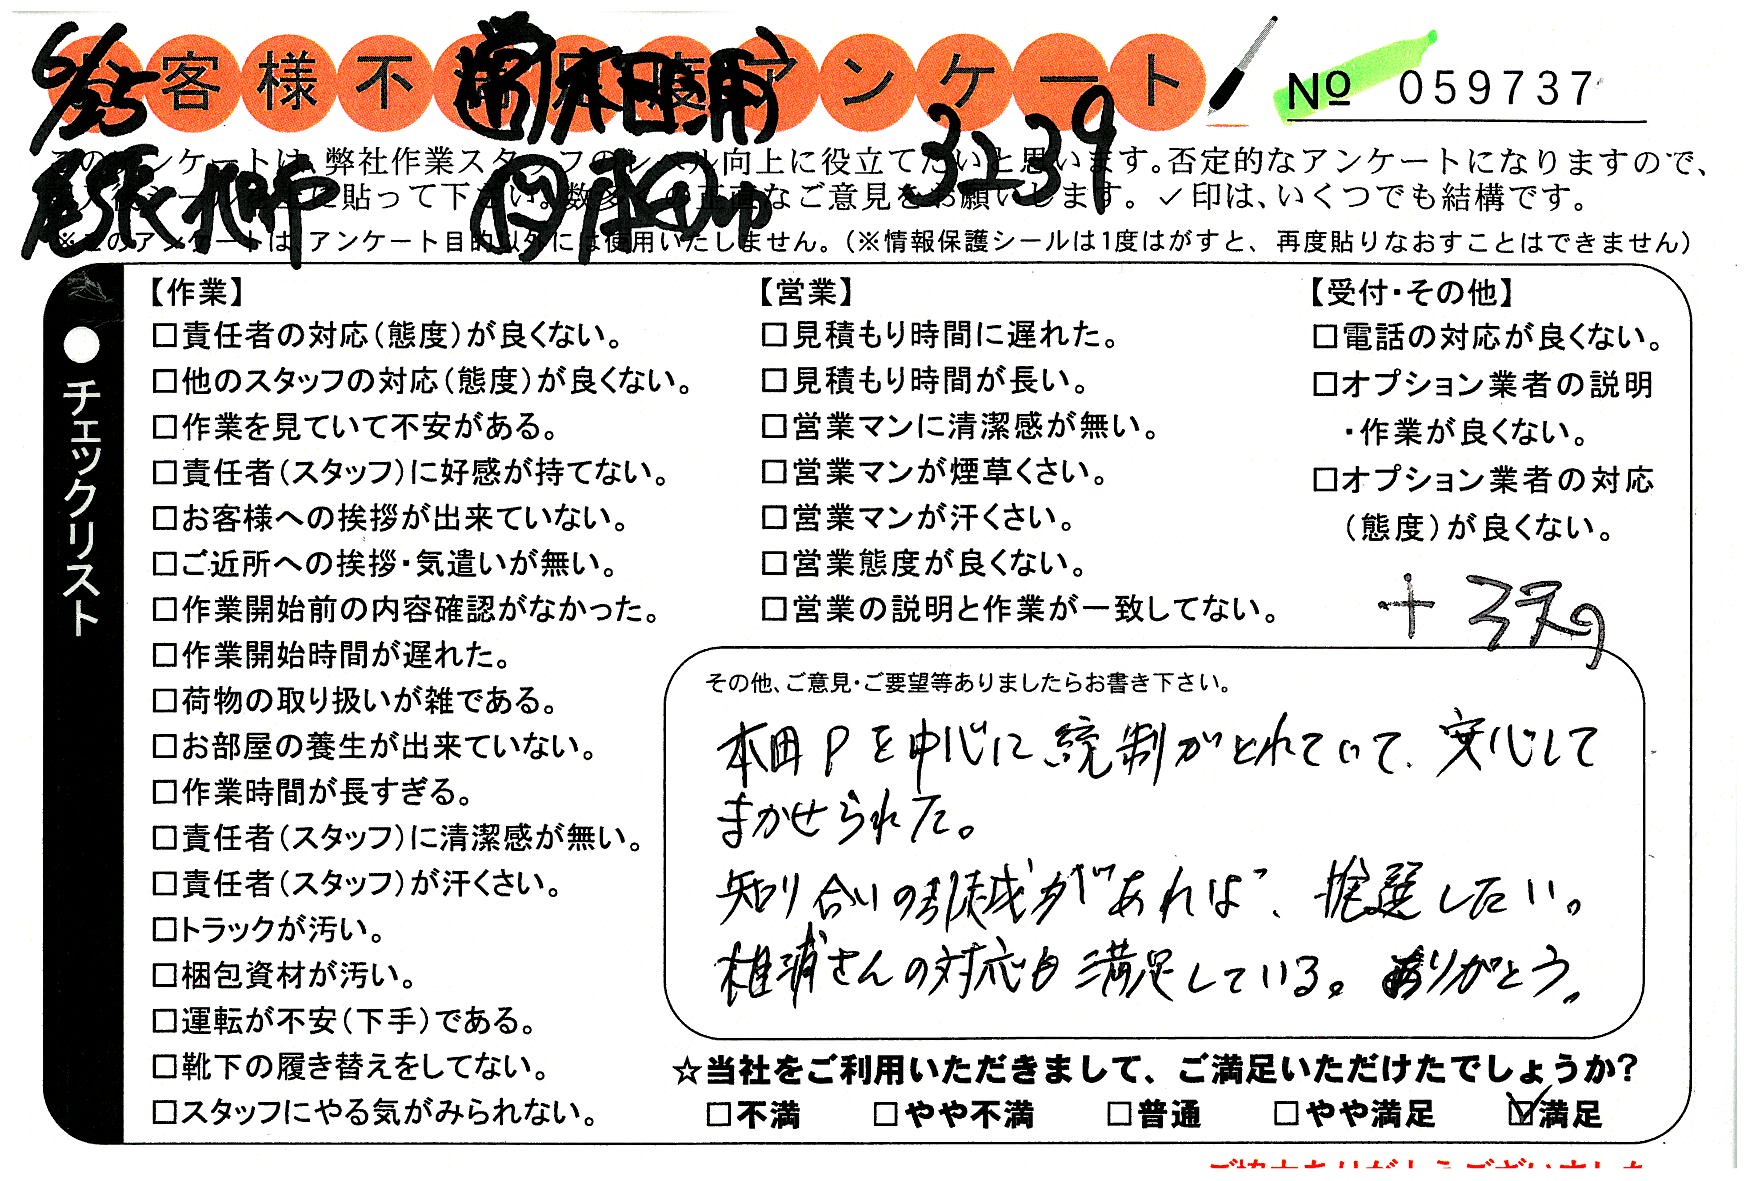 お客様不満足度アンケート
6/25
No 059737
3239
尾張北
このアンケートは、弊社作業スタッフのレベル向上に役立てたいと思います。否定的なアンケートになりますので、
に貼って下さい。数多くの正直なご意見をお願いします。✓印は、いくつでも結構です。
※このアンケートは、アンケート目的以外には使用いたしません。(※情報保護シールは1度はがすと、再度貼りなおすことはできません)
●チェックリスト
【作業】
□責任者の対応(態度)が良くない。
□他のスタッフの対応(態度)が良くない。
□作業を見ていて不安がある。
□責任者(スタッフ)に好感が持てない。
□お客様への挨拶が出来ていない。
□ご近所への挨拶・気遣いが無い。
□作業開始前の内容確認がなかった。
□作業開始時間が遅れた。
□荷物の取り扱いが雑である。
□お部屋の養生が出来ていない。
□作業時間が長すぎる。
□責任者(スタッフ)に清潔感が無い。
□責任者(スタッフ)が汗くさい。
□トラックが汚い。
□梱包資材が汚い。
□運転が不安(下手)である。
□靴下の履き替えをしてない。
□スタッフにやる気がみられない。
【営業】
□見積もり時間に遅れた。
□見積もり時間が長い。
□営業マンに清潔感が無い。
□営業マンが煙草くさい。
□営業マンが汗くさい。
□営業態度が良くない。
□営業の説明と作業が一致してない。
【受付・その他】
□電話の対応が良くない。
□オプション業者の説明
・作業が良くない。
□オプション業者の対応
(態度)が良くない。
その他、ご意見・ご要望等ありましたらお書き下さい。
本田Pを中心に統制がとれていて、安心して
まかせられた。
知り合いの引越があれば、推選したい。
椎浦さんの対応も満足している。ありがとう。
☆当社をご利用いただきまして、ご満足いただけたでしょうか?
□不満 □やや不満 □普通 □やや満足 ☑満足
ご協力ありがとうございました